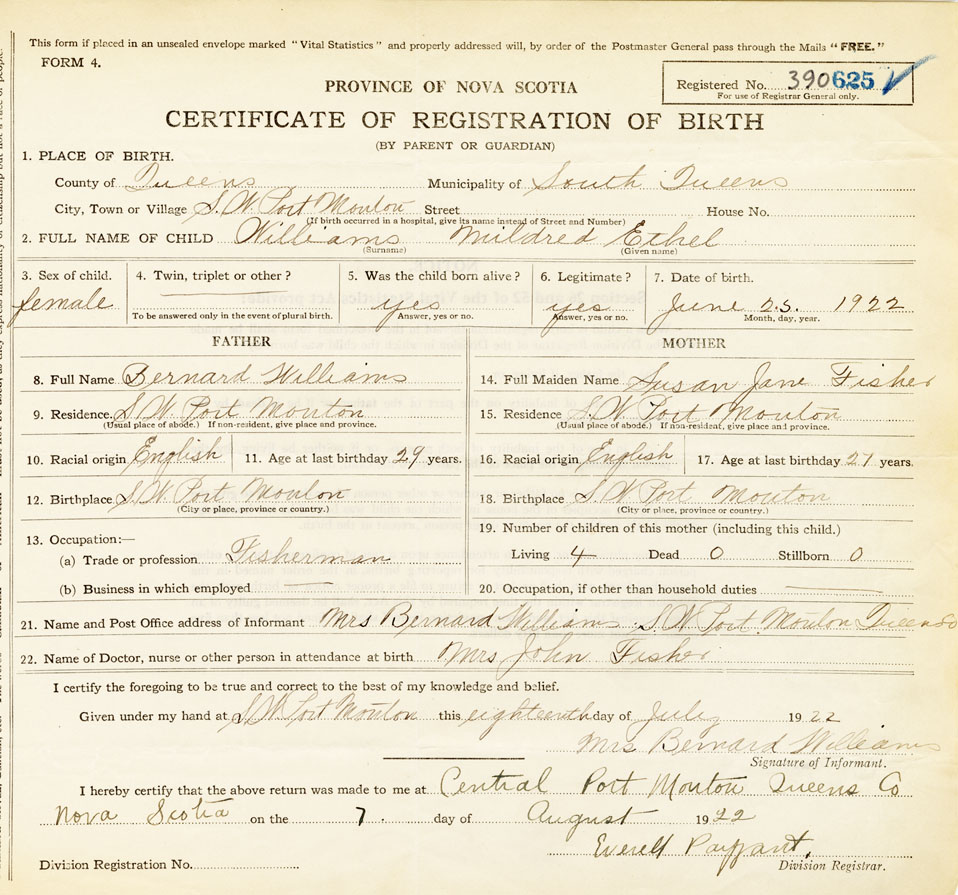 This form if placed in an unsealed envelope marked "Vital Statistics" and properly addressed will, by order of the Postmaster General pass through the Mails "FREE."
FORM 4.
Registered No. 390625
For use of Registrar General only.
PROVINCE OF NOVA SCOTIA
CERTIFICATE OF REGISTRATION OF BIRTH
(BY PARENT OR GUARDIAN)
1. PLACE OF BIRTH.
County of Queens Municipality of South Queens
City, Town or Village S.W. Port Mouton Street House No.
(If birth occurred in a hospital, give its name instead of Street and Number)
2. FULL NAME OF CHILD Williams Mildred Ethel
(Surname) (Given name)
3. Sex of child. 4. Twin, triplet or other? 5. Was the child born alive? 6. Legitimate? 7. Date of birth.
female yes yes June 23. 1922
To be answered only in the event of plural birth. Answer, yes or no. Answer, yes or no. Month, day, year.
FATHER MOTHER
8. Full Name Bernard Williams 14. Full Maiden Name Susan Jane Fisher
9. Residence. S.W. Port Mouton 15. Residence S.W. Port Mouton
(Usual place of abode.) If non-resident, give place and province. (Usual place of abode.) If non-resident, give place and province.
10. Racial origin English 11. Age at last birthday 29 years. 16. Racial origin English 17. Age at last birthday 27 years.
12. Birthplace S.W. Port Mouton 18. Birthplace S.W. Port Mouton
(City or place, province or country.) (City or place, province or country.)
13. Occupation:— 19. Number of children of this mother (including this child.)
(a) Trade or profession Fisherman Living 4 Dead 0 Stillborn 0
(b) Business in which employed 20. Occupation, if other than household duties
21. Name and Post Office address of Informant Mrs Bernard Williams S.W. Port Mouton Queens Co
22. Name of Doctor, nurse or other person in attendance at birth Mrs John Fisher
I certify the foregoing to be true and correct to the best of my knowledge and belief.
Given under my hand at S.W. Port Mouton this eighteenth day of July 1922
Mrs Bernard Williams
Signature of Informant.
I hereby certify that the above return was made to me at Central Port Mouton Queens Co
Nova Scotia on the 7. day of August 1922
Everett Payzant.
Division Registration No. Division Registrar.